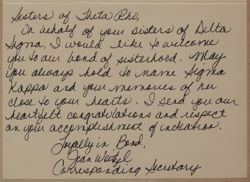 Sisters of Theta Rho,
On behalf of your sisters of Delta
Sigma, I would like to welcome
you to our bond of sisterhood. May
you always hold the name Sigma
Kappa and your memories of her
close to your hearts. I send you our
heartfelt congratulations and respect
on your accomplishment of initiation.
Loyally in Bond,
Jean
Corresponding Secretary